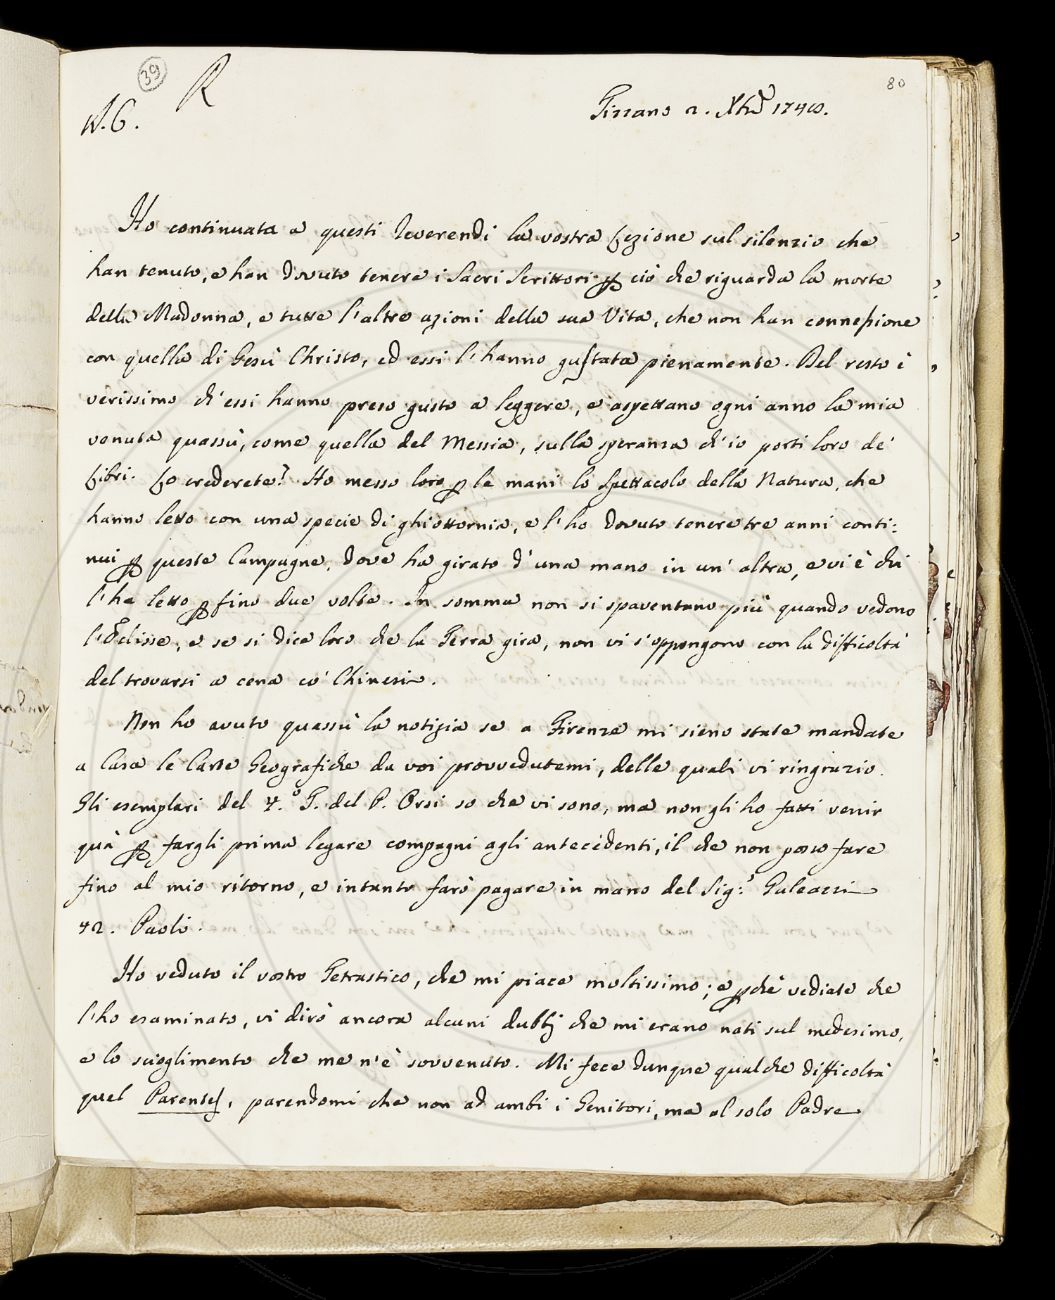 39 R 80
N. 6. Pizzano 2. Xbre 1740.
Ho continuata a questi Reverendi la vostra Lezione sul silenzio che
han tenuto, e han dovuto tenere i Sacri Scrittori p ciò che riguarda la morte
della Madonna, e tutte l'altre azioni della sua Vita, che non han connessione
con quella di Gesù Christo, ed essi l'hanno gustata pienamente. Del resto è
verissimo ch'essi hanno preso gusto a leggere, e aspettano ogni anno la mia
venuta quassù, come quella del Messia, sulla speranza ch'io porti loro de'
Libri. Lo crederete? Ho messo loro p le mani lo Spettacolo della Natura, che
hanno letto con una specie di ghiottornia, e l'ho dovuto tenere tre anni conti:
nui p queste Campagne, dove ha girato d'una mano in un'altra, e vi è chi
l'ha letto p fino due volte. In somma non si spaventano più quando vedono
l'Eclisse, e se si dice loro che la Terra gira, non vi s'oppongono con la difficoltà
del trovarsi a cena co' Chinesi.
Non ho avuto quassù la notizia se a Firenze mi sieno state mandate
a Casa le Carte Geografiche da voi provvedutemi, delle quali vi ringrazio.
Gli esemplari del 4.o T. del P. Orsi so che vi sono, ma non gli ho fatti venir
quà p fargli prima legare compagni agli antecedenti, il che non posso fare
fino al mio ritorno, e intanto farò pagare in mano del Sig.r Galeazzi
42. Paoli.
Ho veduto il vostro Tetrastico, che mi piace moltissimo; e pchè vediate che
l'ho esaminato, vi dirò ancora alcuni dubbj che mi erano nati sul medesimo,
e lo scioglimento che me n'è sovvenuto. Mi fece dunque qualche difficoltà
quel Parentes, parendomi che non ad ambi i Genitori, ma al solo Padre